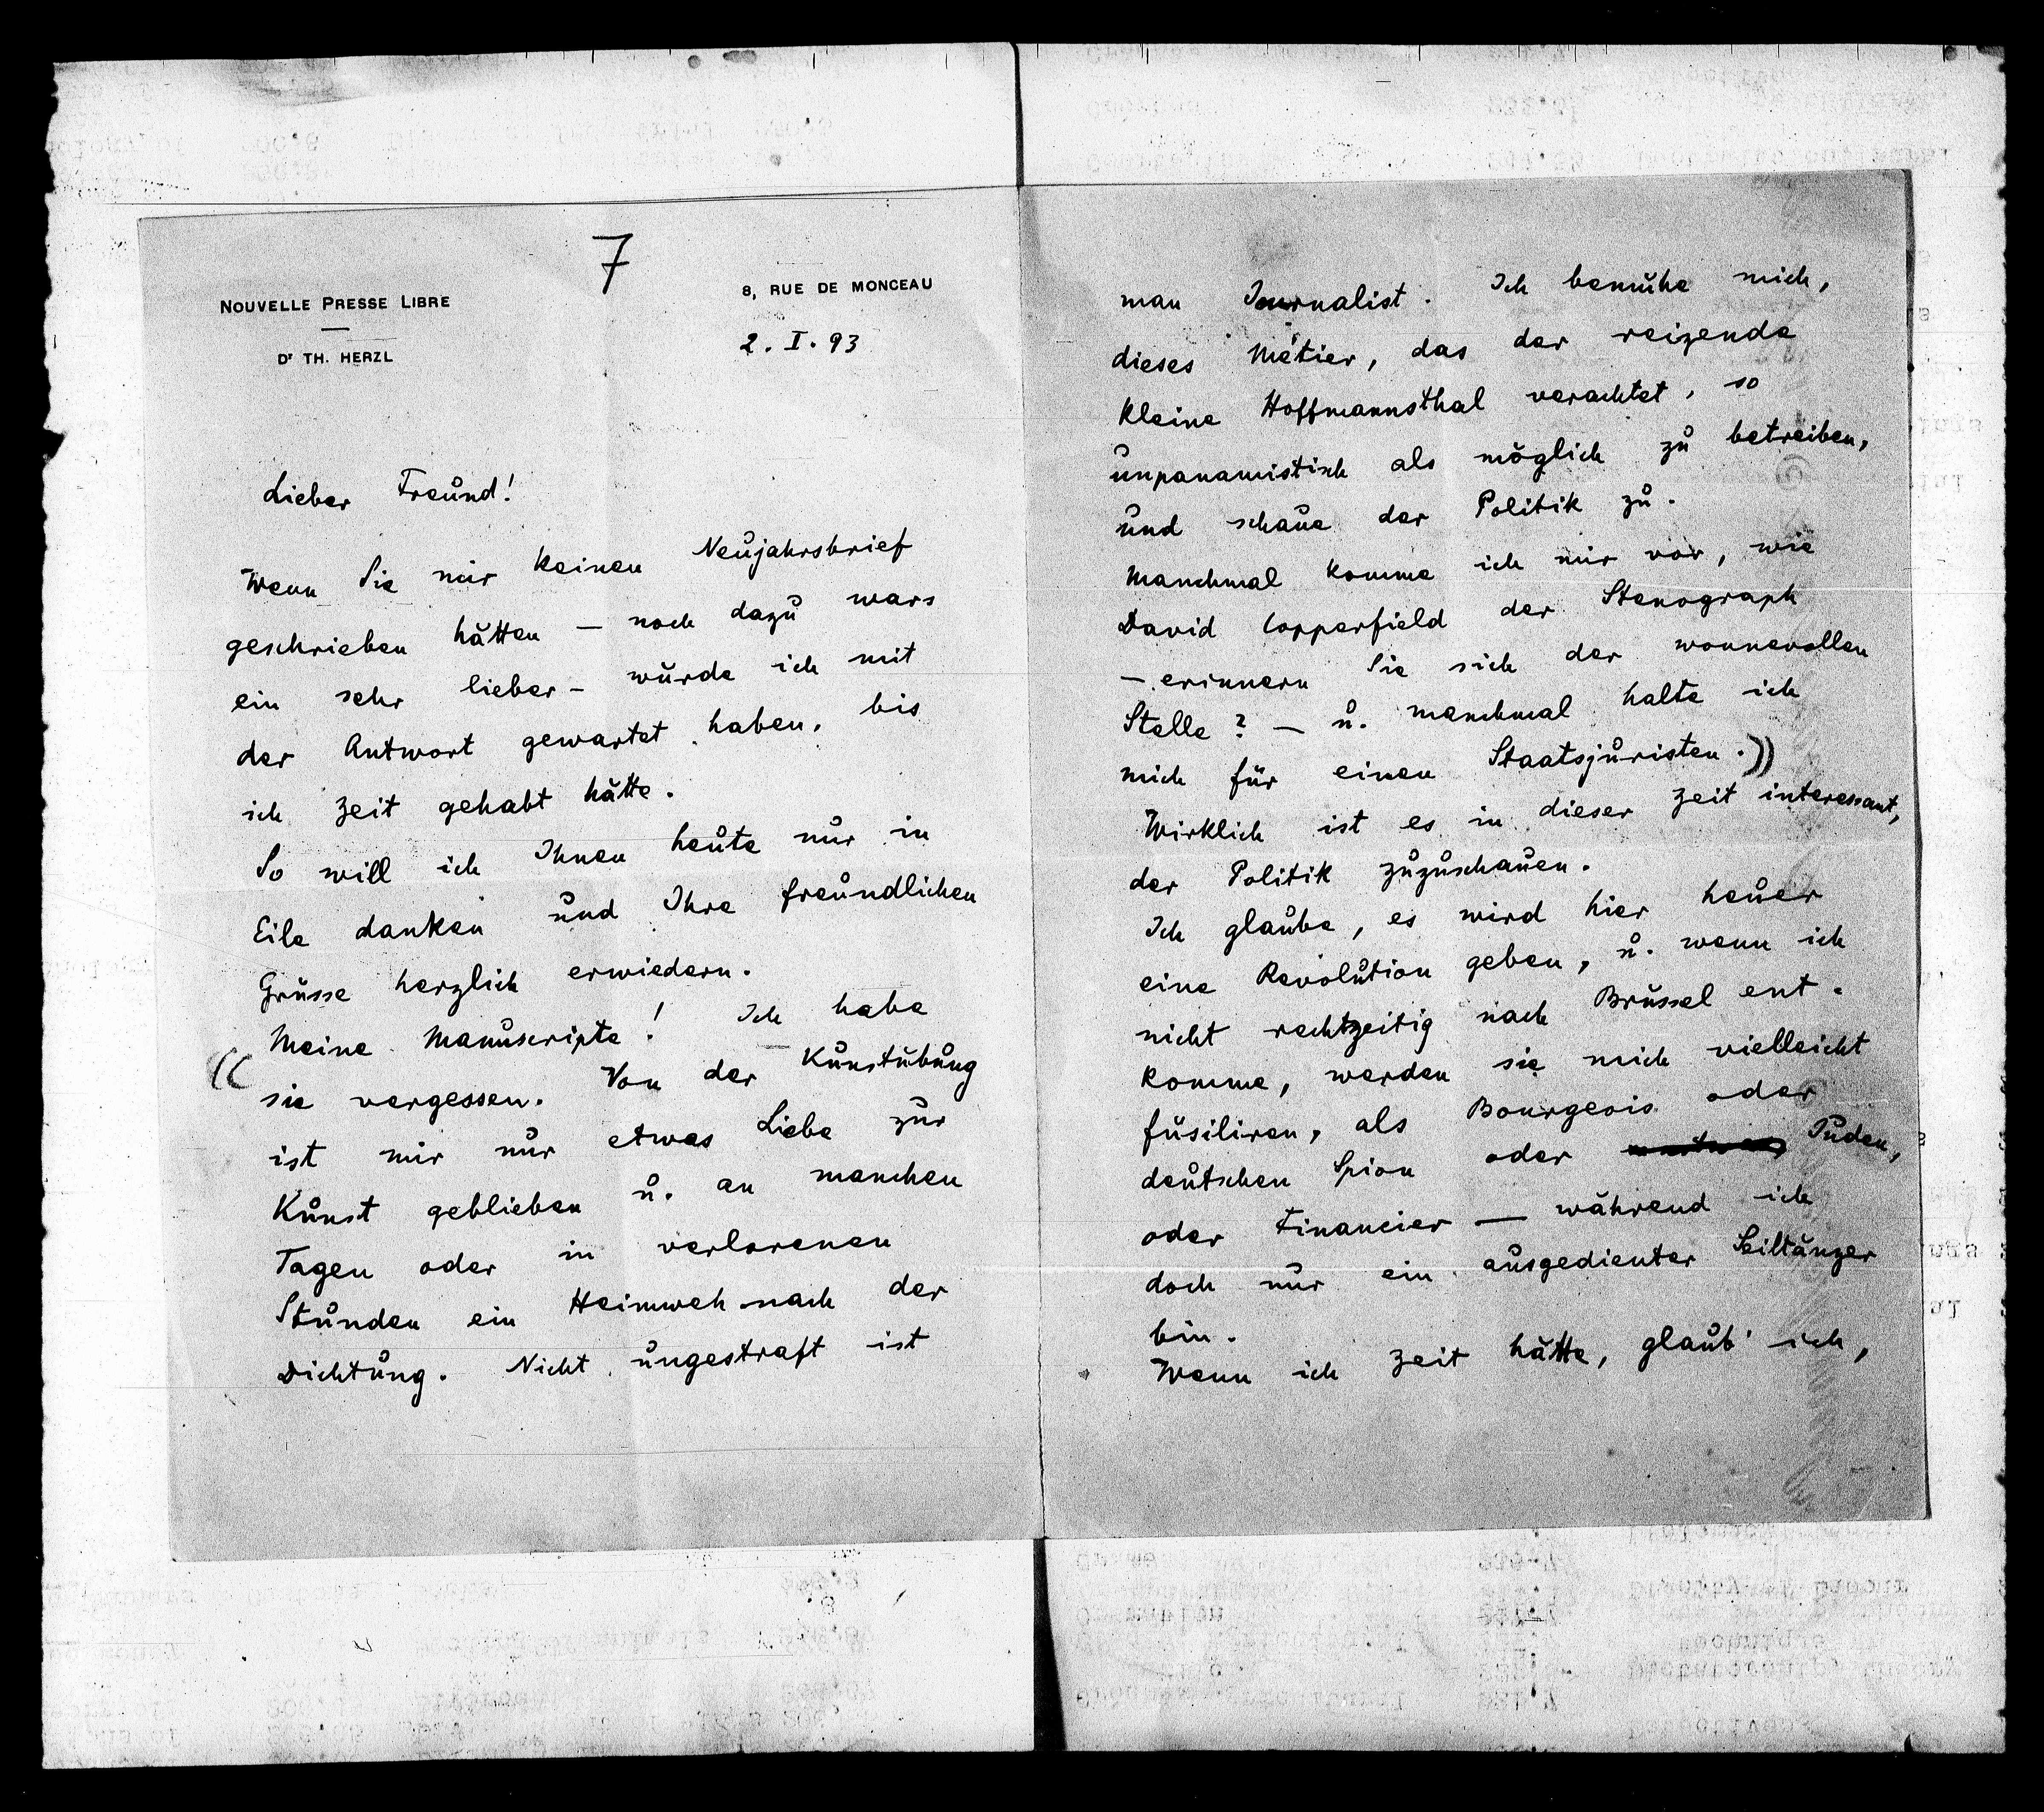 7
NOUVELLE PRESSE LIBRE
8, RUE DE MONCEAU
Dr TH. HERZL
2. I. 93
Lieber Freund!
Wenn Sie mir keinen Neujahrsbrief
geschrieben hätten — noch dazu wars
ein sehr lieber – würde ich mit
der Antwort gewartet haben, bis
ich Zeit gehabt hätte.
So will ich Ihnen heute nur in
Eile danken und Ihre freundlichen
Grüsse herzlich erwiedern.
Meine Manuscripte! Ich habe
((sie vergessen. Von der Kunstübung
ist mir nur etwas Liebe zur
Kunst geblieben u. an manchen
Tagen oder in verlorenen
Stunden ein Heimweh nach der
Dichtung. Nicht ungestraft ist
man Journalist. Ich bemühe mich,
dieses Métier, das der reizende
kleine Hoffmannsthal verachtet, so
unpanamistisch als möglich zu betreiben,
und schaue der Politik zu.
Manchmal komme ich mir vor, wie
David Copperfield der Stenograph
– erinnern Sie sich der wonnevollen
Stelle? — u. manchmal halte ich
mich für einen Staatsjuristen.))
Wirklich ist es in dieser Zeit interessant,
der Politik zuzuschauen.
Ich glaube, es wird hier heuer
eine Revolution geben, u. wenn ich
nicht rechtzeitig nach Brüssel ent-
komme, werden sie mich vielleicht
füsiliren, als Bourgeois oder
deutschen Spion oder Juden,
oder Financier — während ich
doch nur ein ausgedienter Seiltänzer
bin.
Wenn ich Zeit hätte, glaub' ich,